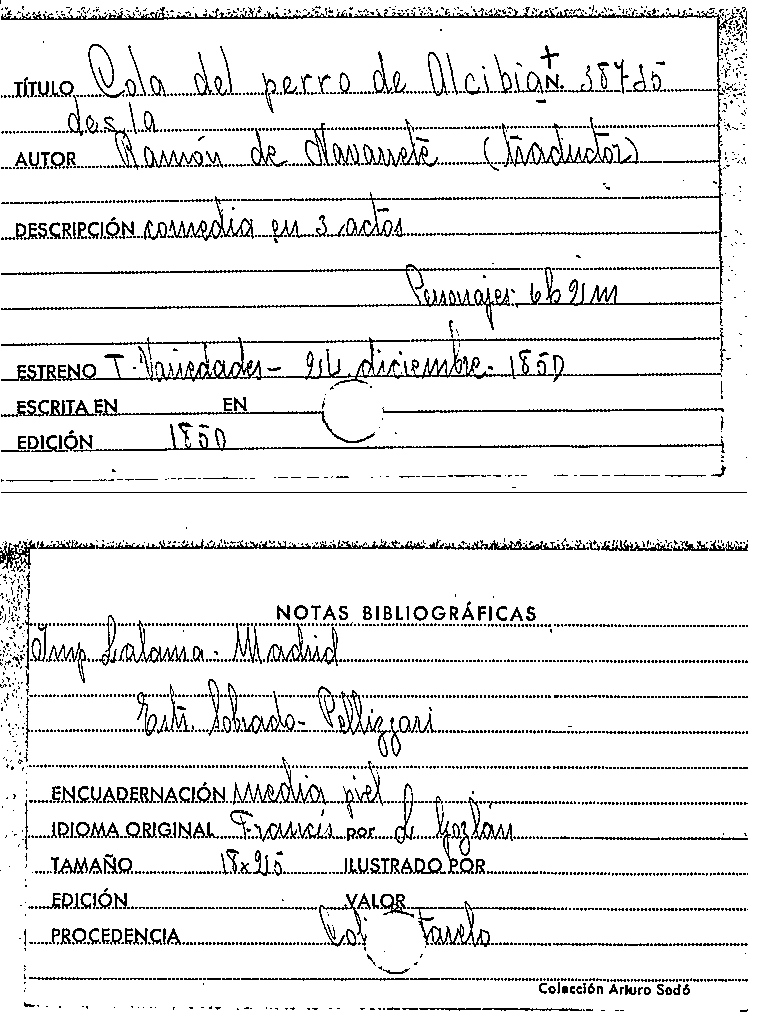 TÍTULO Cola del perro de Alcibia N. 38725
des, la
AUTOR Ramón de Navarrete (traductor)
DESCRIPCIÓN comedia en 3 actos
Personajes: 6h 2m
ESTRENO T. Variedades - 24 diciembre - 1850
ESCRITA EN EN
EDICIÓN 1850
NOTAS BIBLIOGRÁFICAS
Imp Lalama - Madrid
Estr. Sobrado - Pellizzari
ENCUADERNACIÓN media piel
IDIOMA ORIGINAL Francés por L Gozlán
TAMAÑO 18x25 ILUSTRADO POR
EDICIÓN VALOR
PROCEDENCIA
Colección Arturo Sedó